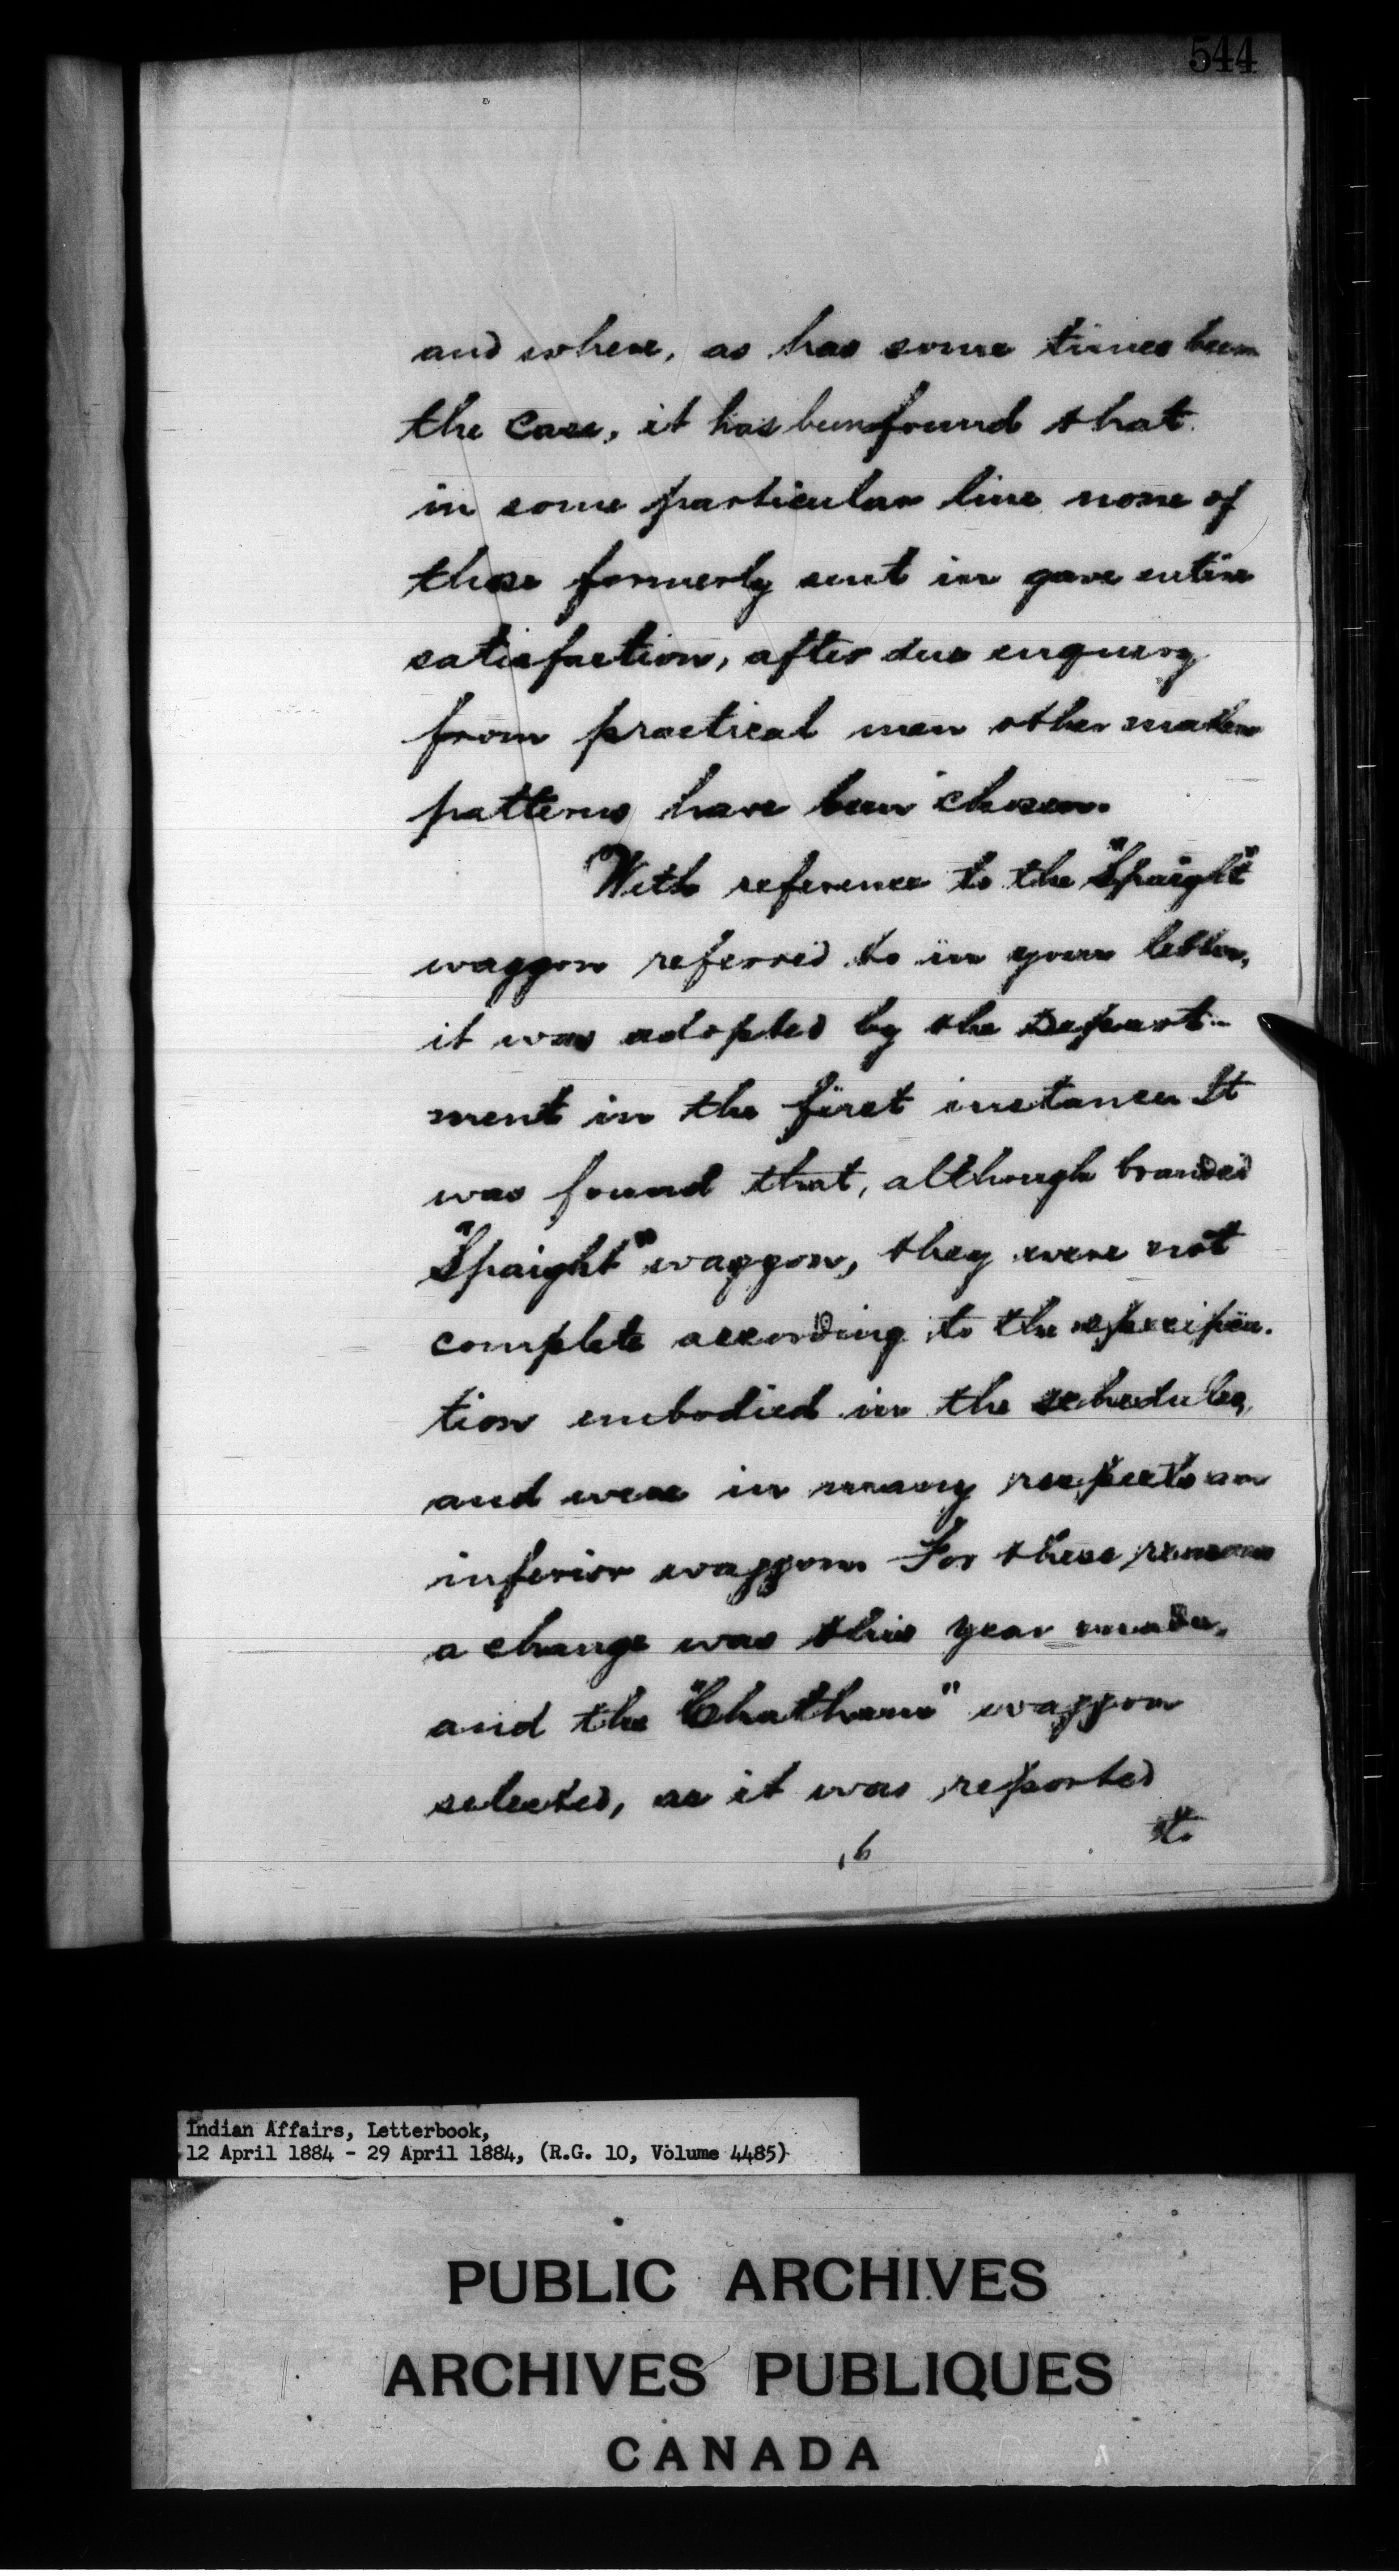 544
and where, as has some times been
the case, it has been found that
in some particular line none of
those formerly sent in gave entire
satisfaction, after due enquiry
from practical men other makers
patterns have been chosen.
With reference to the "Spaight"
waggon referred to in your letter,
it was adopted by the Depart-
ment in the first instance It
was found that, although branded
"Spaight" waggon, they were not
complete according to the specifica-
tion embodied in the schedules,
and were in many respects an
inferior waggon For these reasons
a change was this year made,
and the "Chatham" waggon
selected, as it was reported
to
Indian Affairs, Letterbook,
12 April 1884 - 29 April 1884, (R.G. 10, Volume 4485)
PUBLIC ARCHIVES
ARCHIVES PUBLIQUES
CANADA